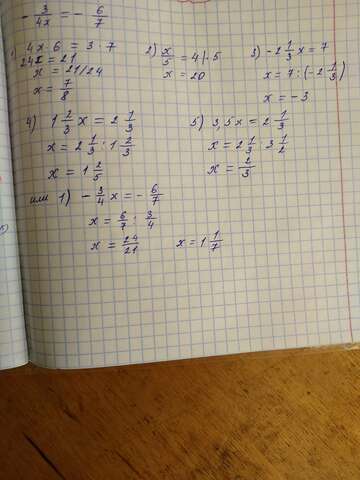 - 3/4x = - 6/7
1) 4x·6 = 3·7
24x = 21
x = 21/24
x = 7/8
2) x/5 = 4 |·5
x = 20
3) -2 1/3 x = 7
x = 7 : (-2 1/3)
x = -3
4) 1 2/3 x = 2 1/3
x = 2 1/3 : 1 2/3
x = 1 2/5
5) 3,5x = 2 1/3
x = 2 1/3 : 3 1/2
x = 2/3
или 1) - 3/4 x = - 6/7
x = 6/7 : 3/4
x = 24/21
x = 1 1/7